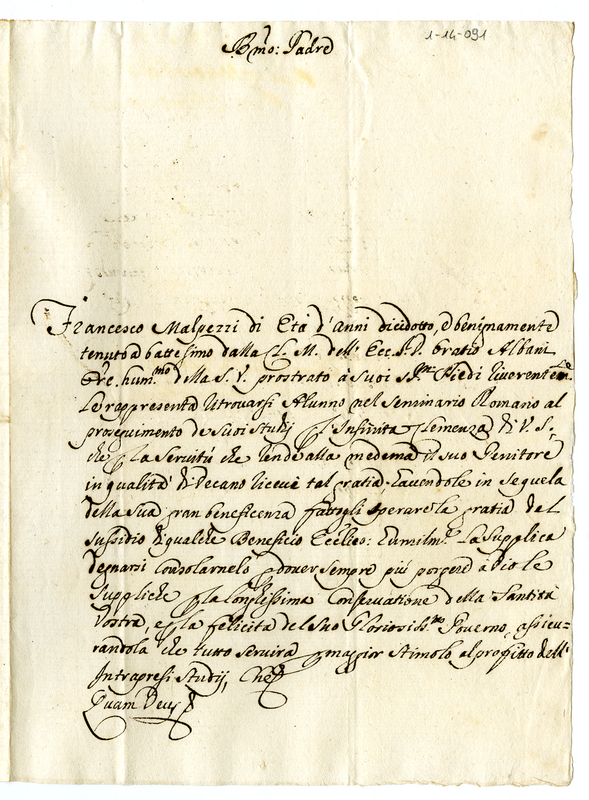 B.mo: Padre
1-14-091
Francesco Malpezzi di Età d'Anni dicidotto, e benignamente
tenuto a battesimo dalla C. M. dell' Ecc. S. D. Oratio Albani
hum.mo della S. V. prostrato à suoi Piedi riverentem.te
Le rappresenta ritrovarsi Alunno nel Seminario Romano al
proseguimento de suoi studij Infinita Clemenza di V. S.,
che la Servitù che rende alla medema il suo Genitore
in qualità di Decano riceve tal gratia. Havendole in sequela
della sua gran beneficenza fattogli sperare la gratia del
sussidio di qualche Beneficio Eccl.co: humilm.te La supplica
degnarsi consolarnelo dover sempre più porgere à Dio le
suppliche la longhissima Conservatione della Santità
Vostra, e la felicità del suo Gloriosiss.mo Governo, assicu=
randola che tutto servirà maggior stimolo al profitto dell'
Intrapresi studij, Che
Quam Deus